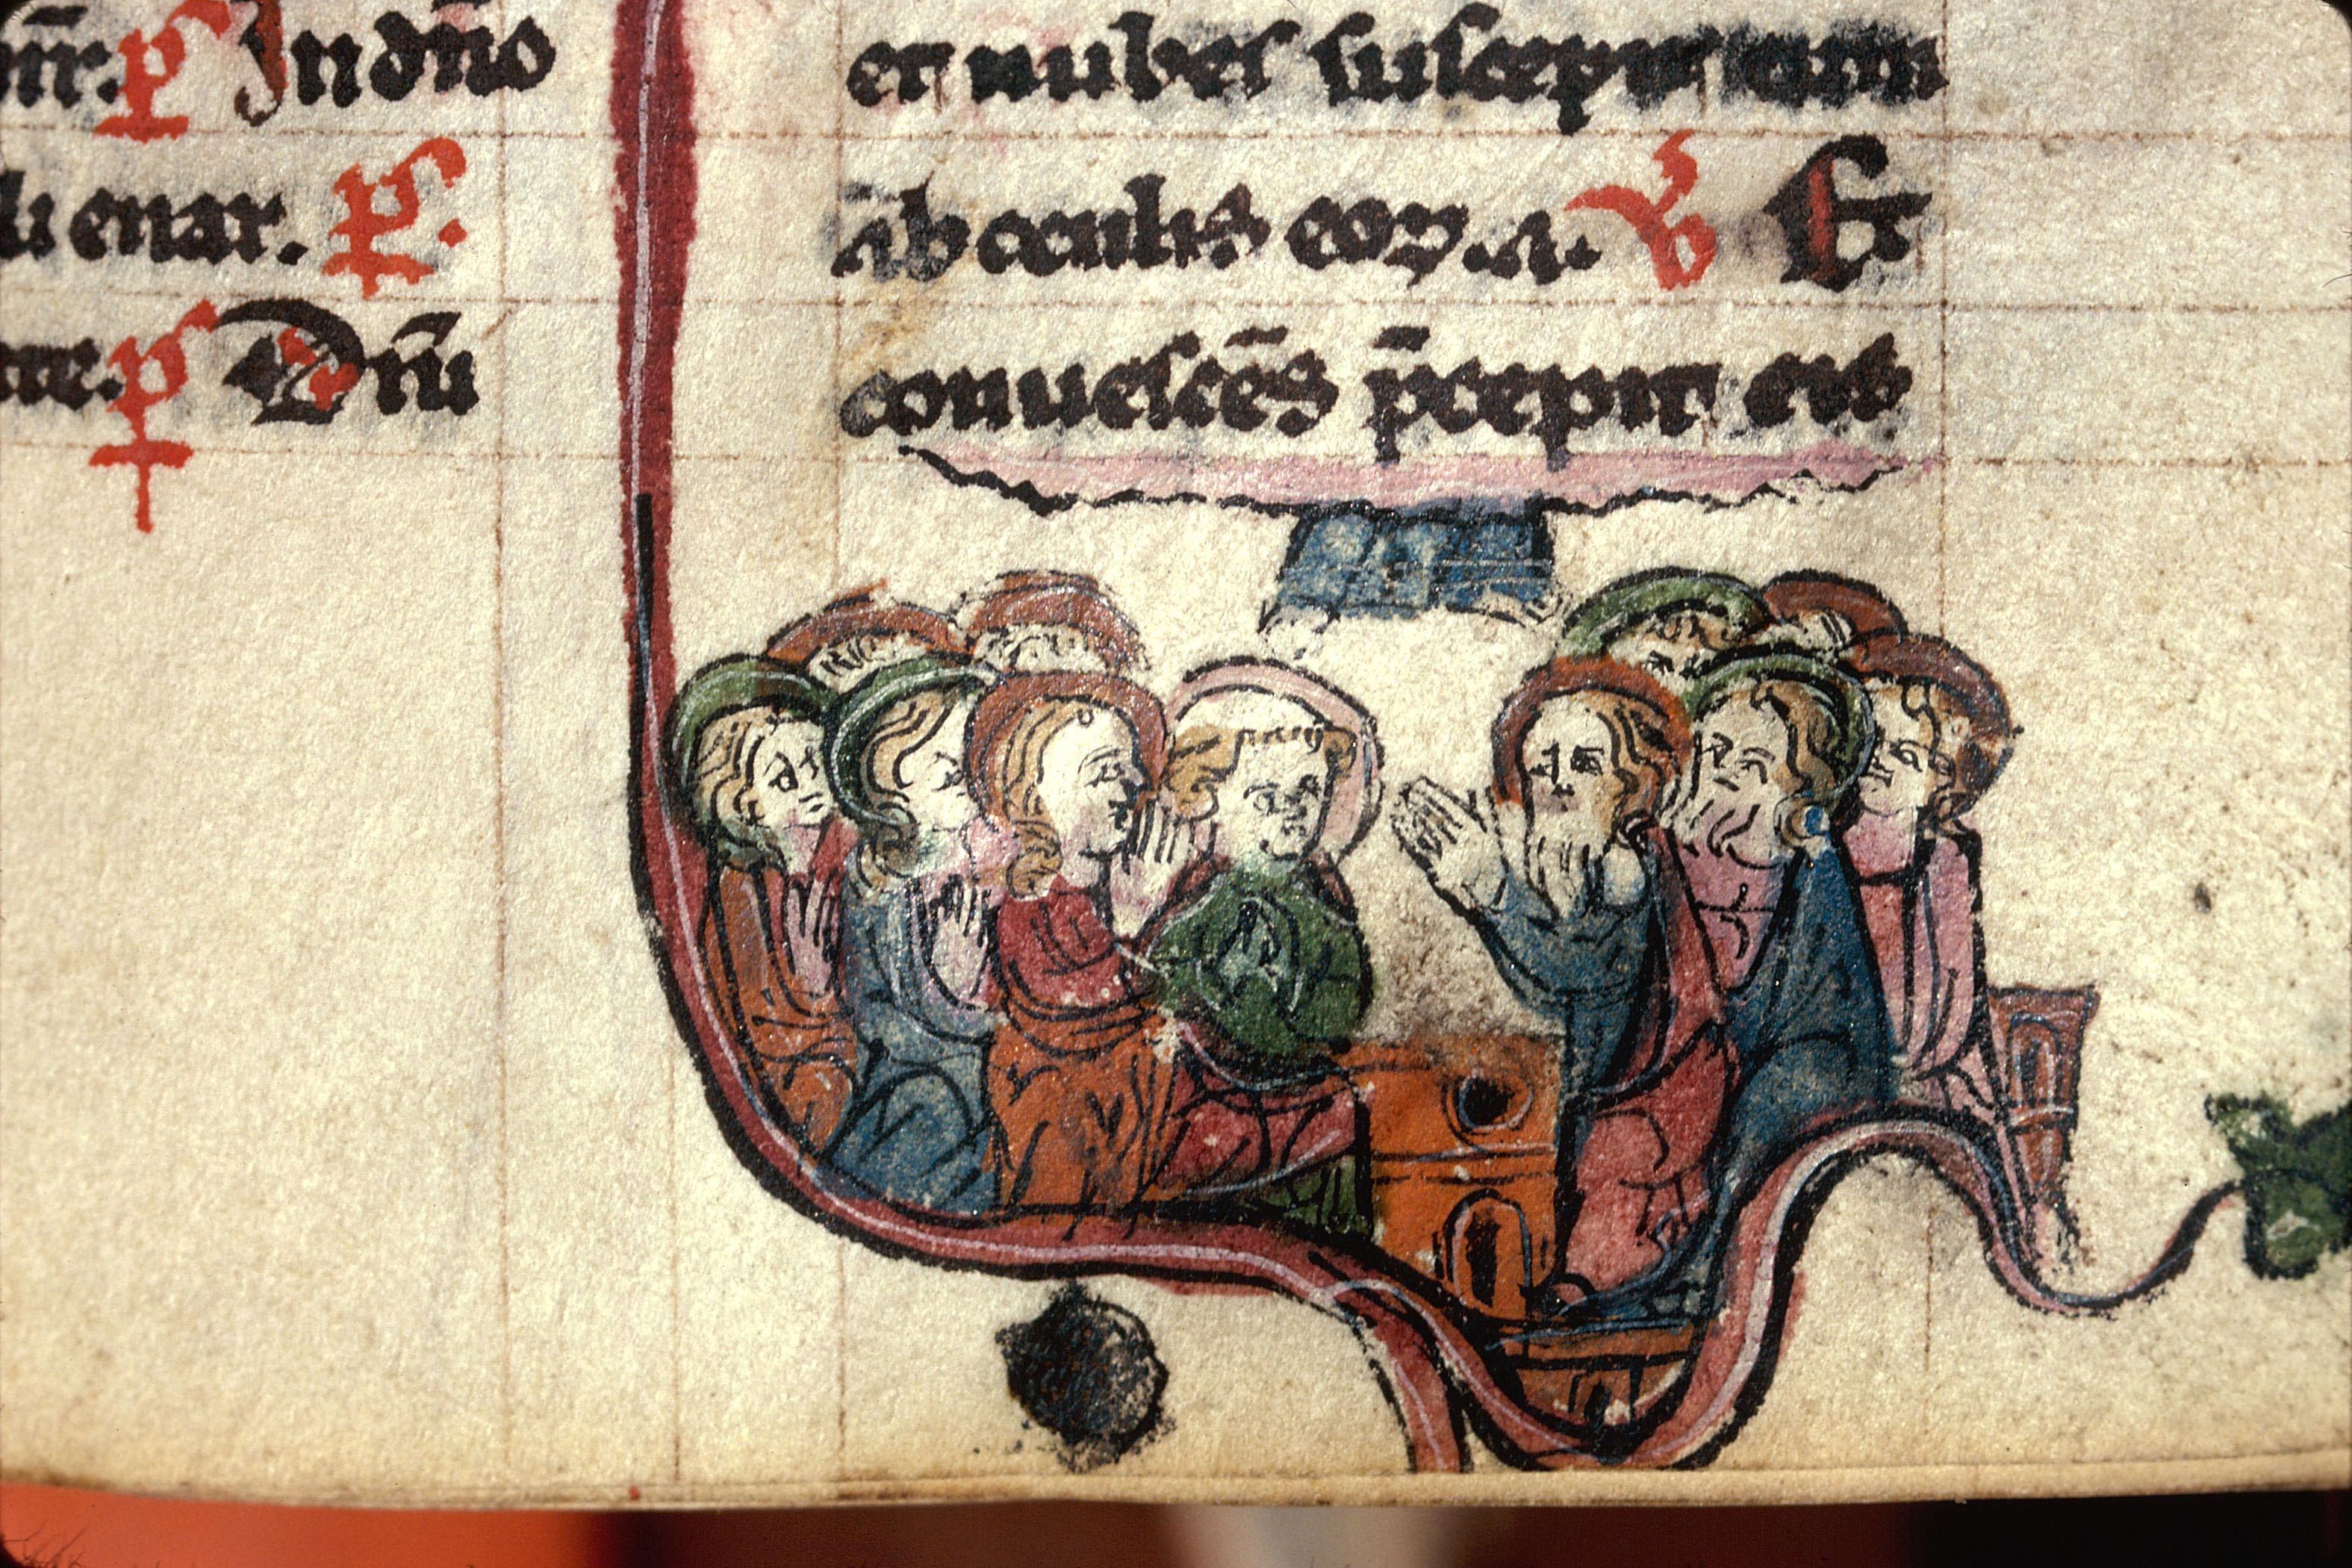 P̷ In dn̄o
enar. P̷.
P̷ Dn̄i
et nubes suscepit eum
ab oculis eoꝝ. a. ℣ Et
conuescēs p̄cepit eis